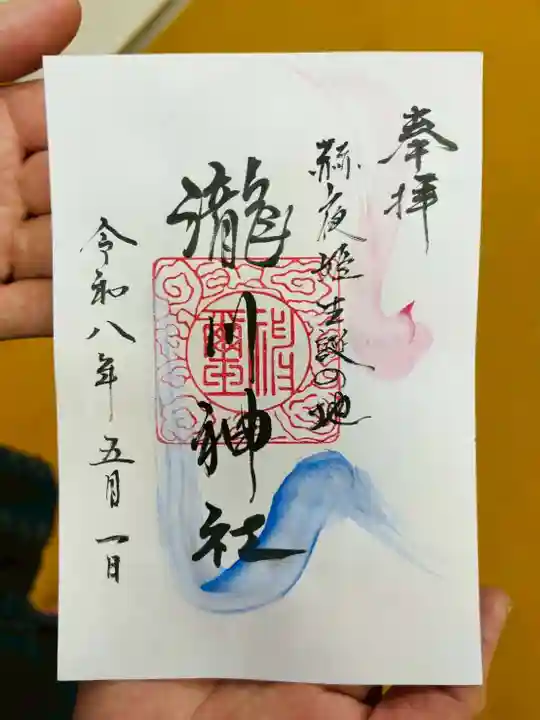 奉拝
赫夜姫生誕の地
瀧川神社
令和八年五月一日